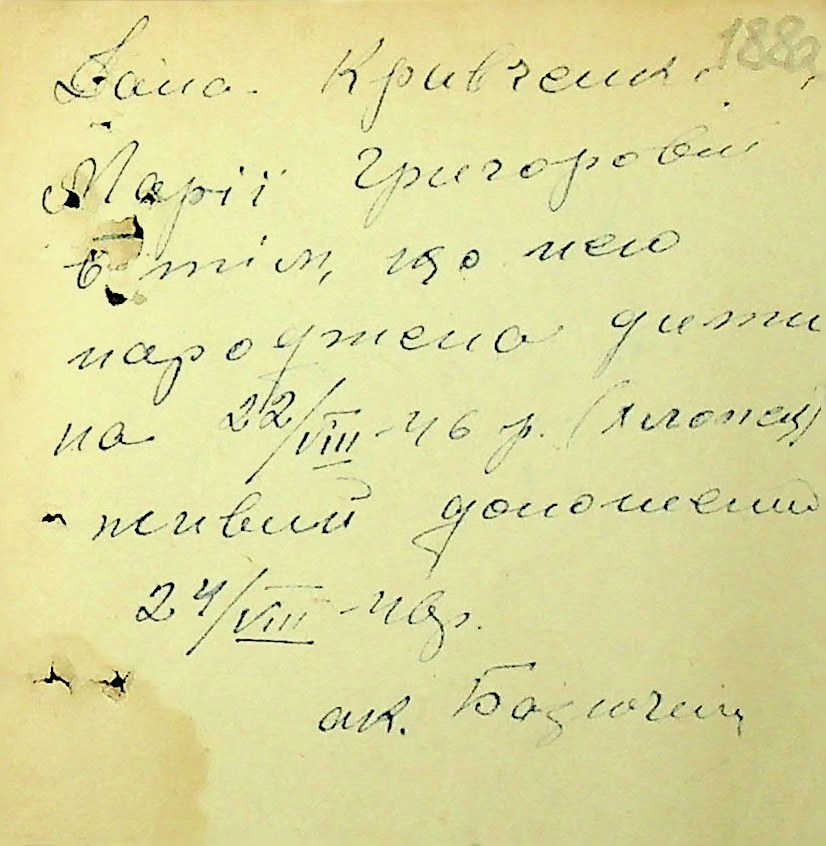 188
Дана Кривченк
Марії Григоровні
в тім, що нею
народжена дити
на 22/VIII-46 р. (хлопец)
живий доношений
24/VIII-46р.
ак.